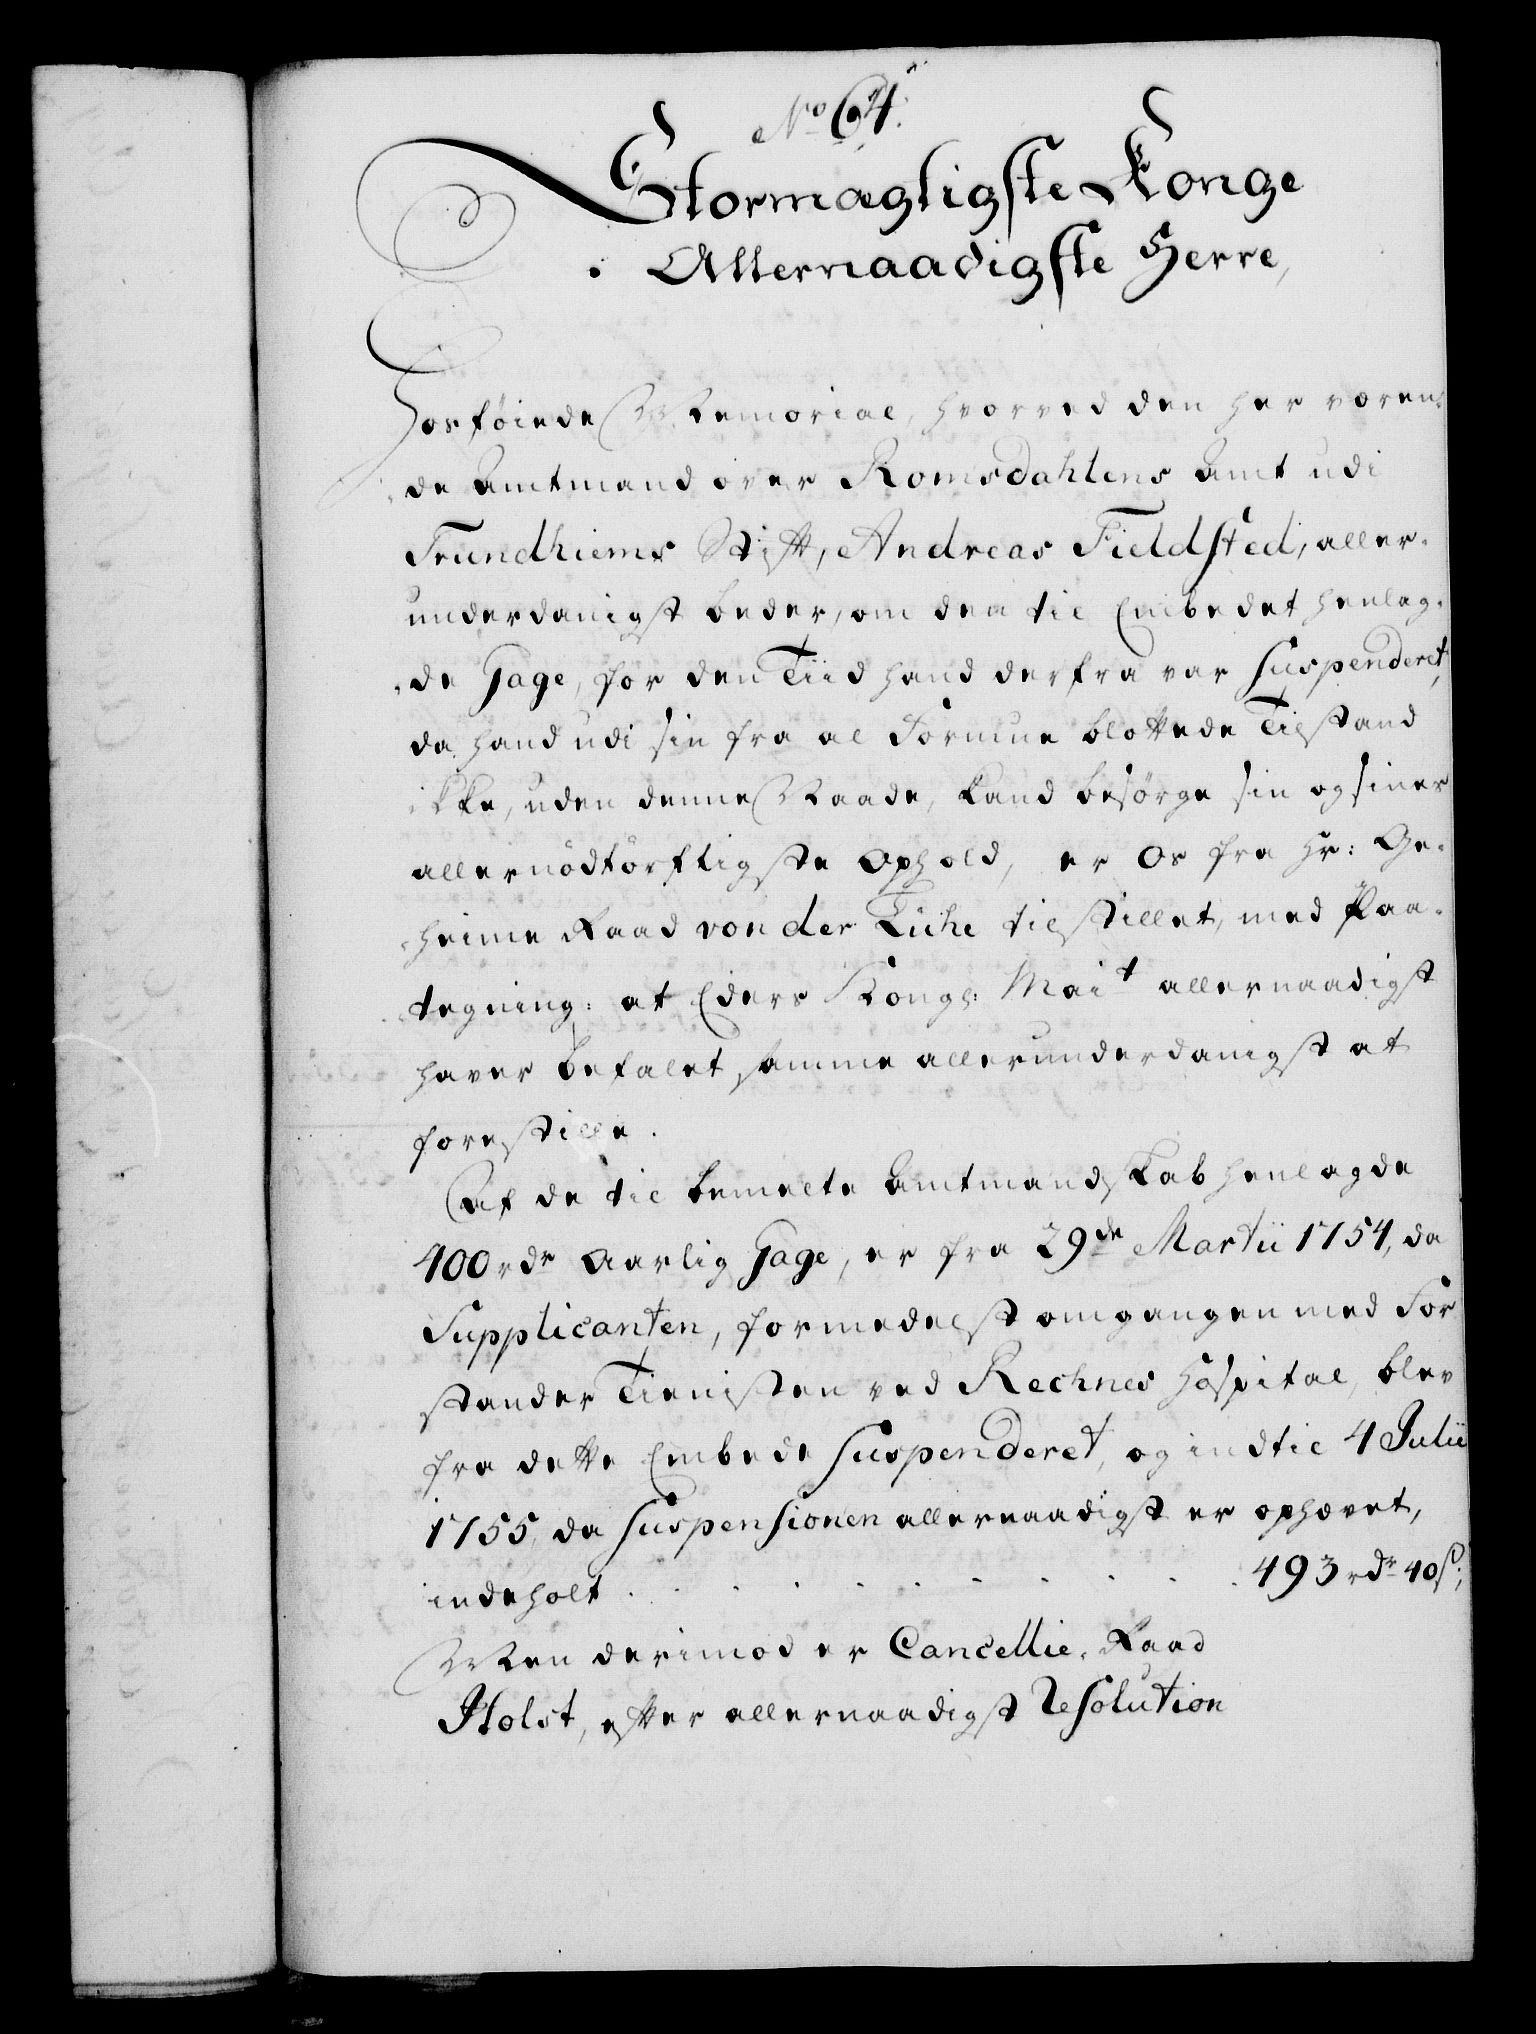 No 64.
Stormægtigste Konge
Allernaadigste Herre,
Hosföiede Memorial, hvorved den her væren-
de Amtmand over Romsdahlens Amt udi
Trundhiems Stift, Andreas Fieldsted, aller-
underdanigst beder, om den til Embedet henlag-
de Gage, for den Tiid hand derfra var Suspenderet,
da hand udi sin fra al Formue blottede Tilstand
ikke, uden denne Maade, kand besörge sin og siner
allernödtörftigste Ophold, er Os fra Hr: Ge-
heime Raad von der Lühe tilstillet, med Paa-
tegning: at Eders Kongl: Mait allernaadigst
haver befalet samme allerunderdanigst at
forestille.
Af de til bemelte Amtmandskab henlagde
400 rdr Aarlig Gage, er fra 29de Martii 1754, da
Supplicanten, formedelst omgangen med For
stander Tienisten ved Rechnes Hospital, blev
fra dette Embede Suspenderet, og indtil 4 Julii
1755, da Suspensionen allernaadigst er ophævet,
indeholt . . . . . . . . . . 493 rdr 40 s;
Men derimod er Cancellie-Raad
Holst, efter allernaadigst Resolution